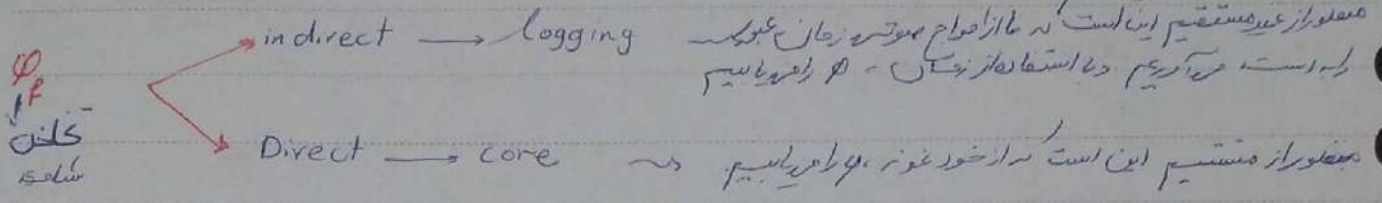 indirect → logging منظور از غیر مستقیم این است که ما از امواج صوتی زمان عبور
را بدست می‌آوریم و با استفاده از زمان، φ را می‌یابیم
φ
تخلخل
Direct → core ~> منظور از مستقیم این است که از خود نمونه، φ را می‌یابیم